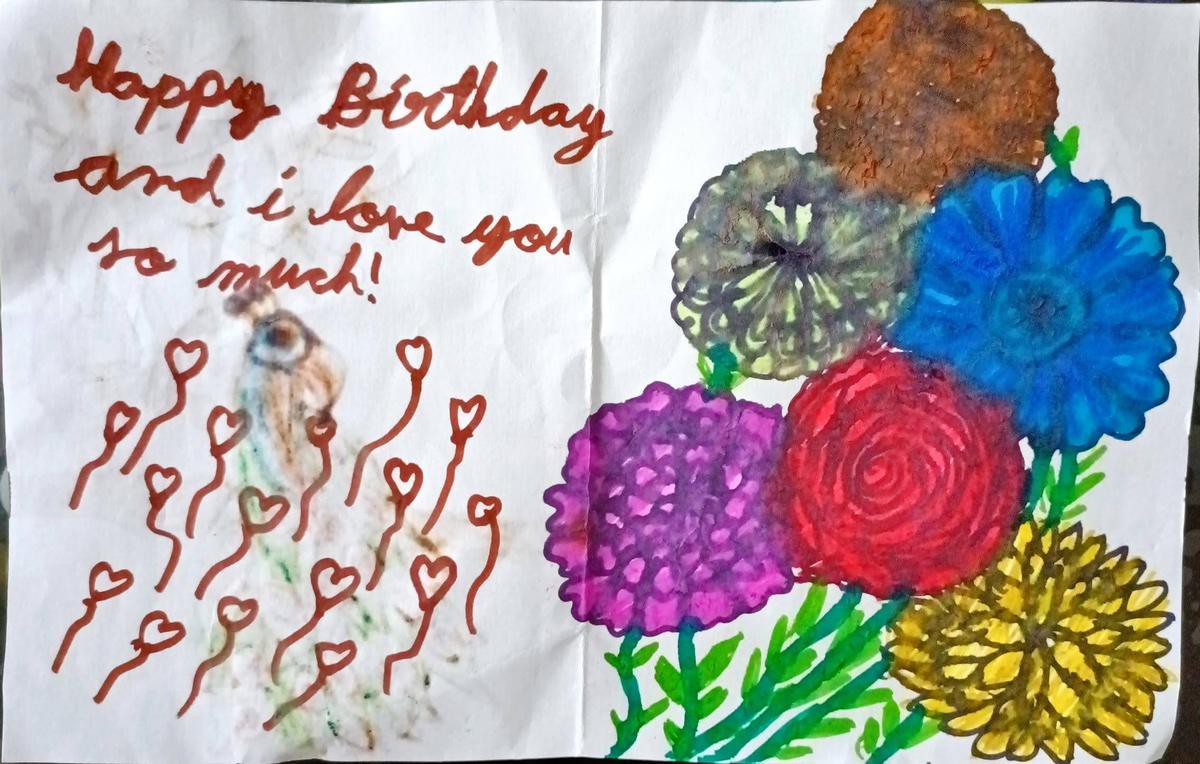 Happy Birthday
and i love you
so much!